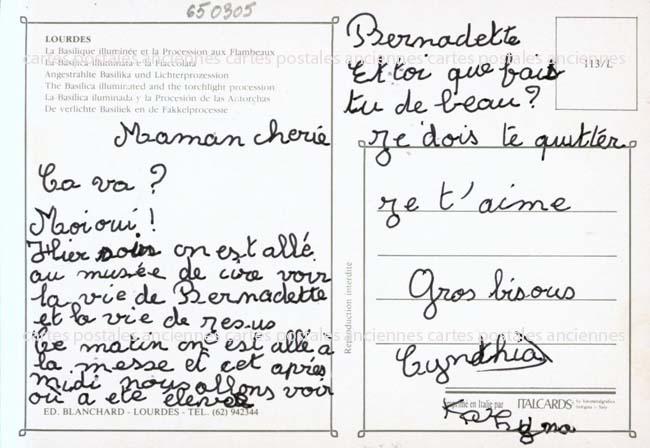 650305
LOURDES
La Basilique illuminée et la Procession aux Flambeaux
La Basilica illuminata e la Fiaccolata
Angestrahlte Basilika und Lichterprozession
The Basilica illuminated and the torchlight procession
La Basilica iluminada y la Procesión de las Antorchas
De verlichte Basiliek en de Fakkelprocessie
cartes postales anciennes cartes postales anciennes cartes postales anciennes
Maman cherie
Ca va ?
Moi oui !
Hier soir on est allé
au musée de cire voir
la vie de Bernadette
et la vie de resus
Ce matin on est allé a
la messe et cet après
midi nous allons voir
où a été élever
ED. BLANCHARD - LOURDES - TEL. (62) 942344
Reproduction interdite
113/L
Bernadette
Et toi que fais
tu de beau ?
Je dois te quitter
Je t'aime
Gros bisous
cartes postales anciennes cartes postales anciennes cartes postales anciennes
Cyndthia
Imprimé en Italie par ITALCARDS